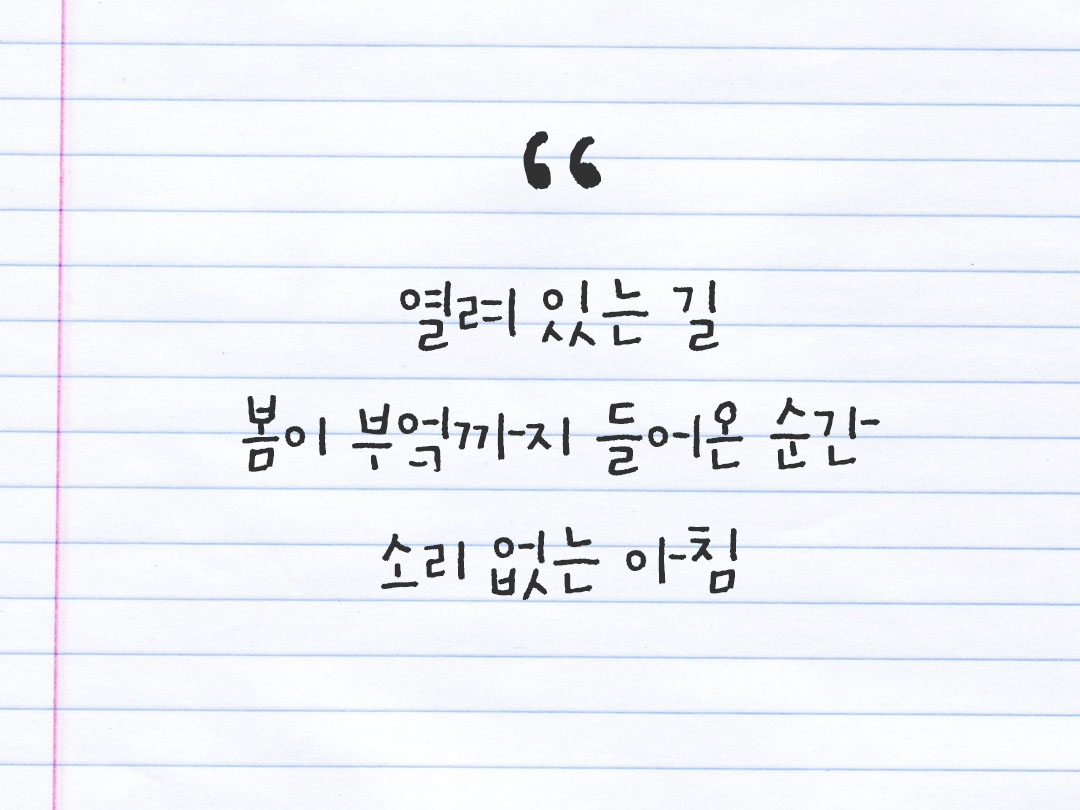 “
열려 있는 길
봄이 부엌까지 들어온 순간
소리 없는 아침